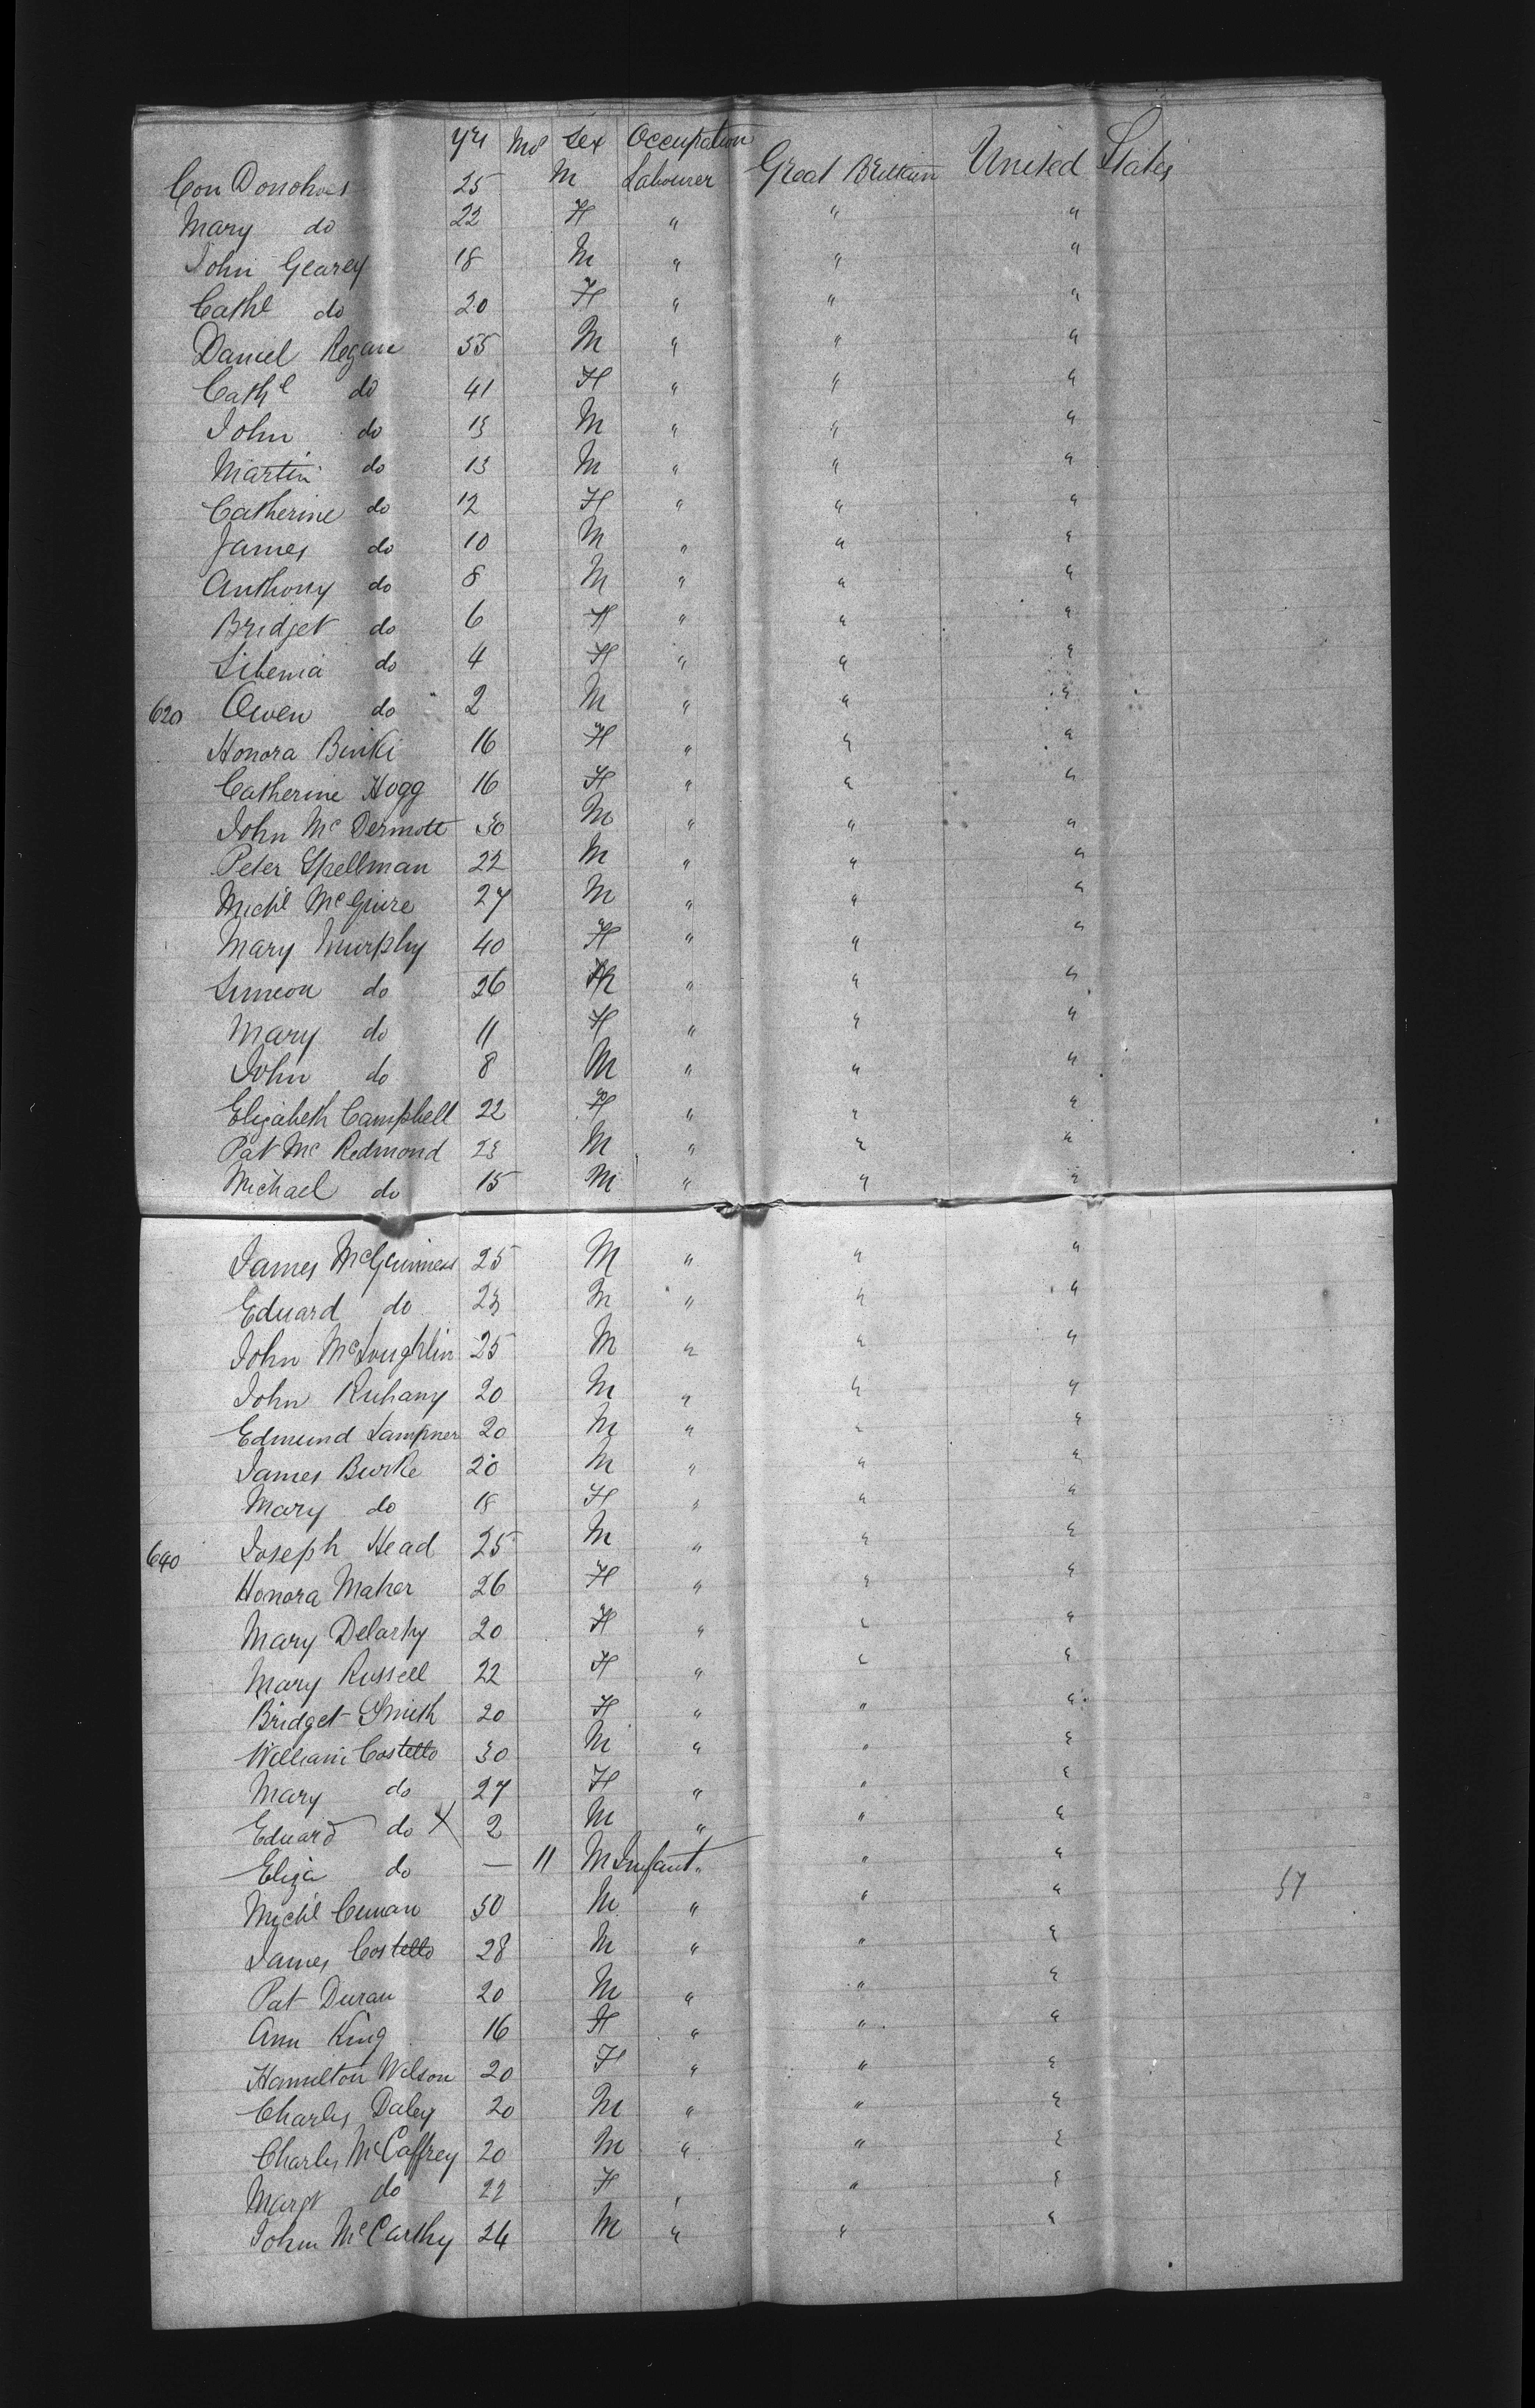 yrs Mos Sex Occupation
Con Donohoes 25 M Labourer Great Brittain United States
Mary do 22 F " " "
John Gearey 18 M " " "
Cathe do 20 F " " "
Daniel Regan 55 M " " "
Cathe do 41 F " " "
John do 13 M " " "
Martin do 13 M " " "
Catherine do 12 F " " "
James do 10 M " " "
Anthony do 8 M " " "
Bridget do 6 F " " "
do 4 F " " "
620 Owen do 2 M " " "
Honora 16 F " " "
Catherine Hogg 16 F " " "
John McDermott 30 M " " "
Peter Spellman 22 M " " "
Michl McGuire 27 M " " "
Mary Murphy 40 F " " "
Simeon do 26 M " " "
Mary do 11 F " " "
John do 8 M " " "
Elizabeth Campbell 22 F " " "
Pat Mc Redmond 23 M " " "
Michael do 15 M " " "
James McGuinness 25 M " " "
Eduard do 23 M " " "
John McLoughlin 25 M " " "
John Ruhany 20 M " " "
Edmund Lampner 20 M " " "
James Burke 20 M " " "
Mary do 18 F " " "
640 Joseph Head 25 M " " "
Honora Maher 26 F " " "
Mary Delarhy 20 F " " "
Mary Russell 22 F " " "
Bridget Smith 20 F " " "
William Costello 30 M " " "
Mary do 27 F " " "
Eduard do X 2 M " " "
Eliza do — 11 M Infant " " "
Michl Cunan 30 M " " " 57
James Costello 28 M " " "
Pat Duran 20 M " " "
Ann King 16 F " " "
Hamilton Wilson 20 F " " "
Charles Daley 20 M " " "
Charles McCaffrey 20 M " " "
Margt do 22 F " " "
John McCarthy 24 M " " "